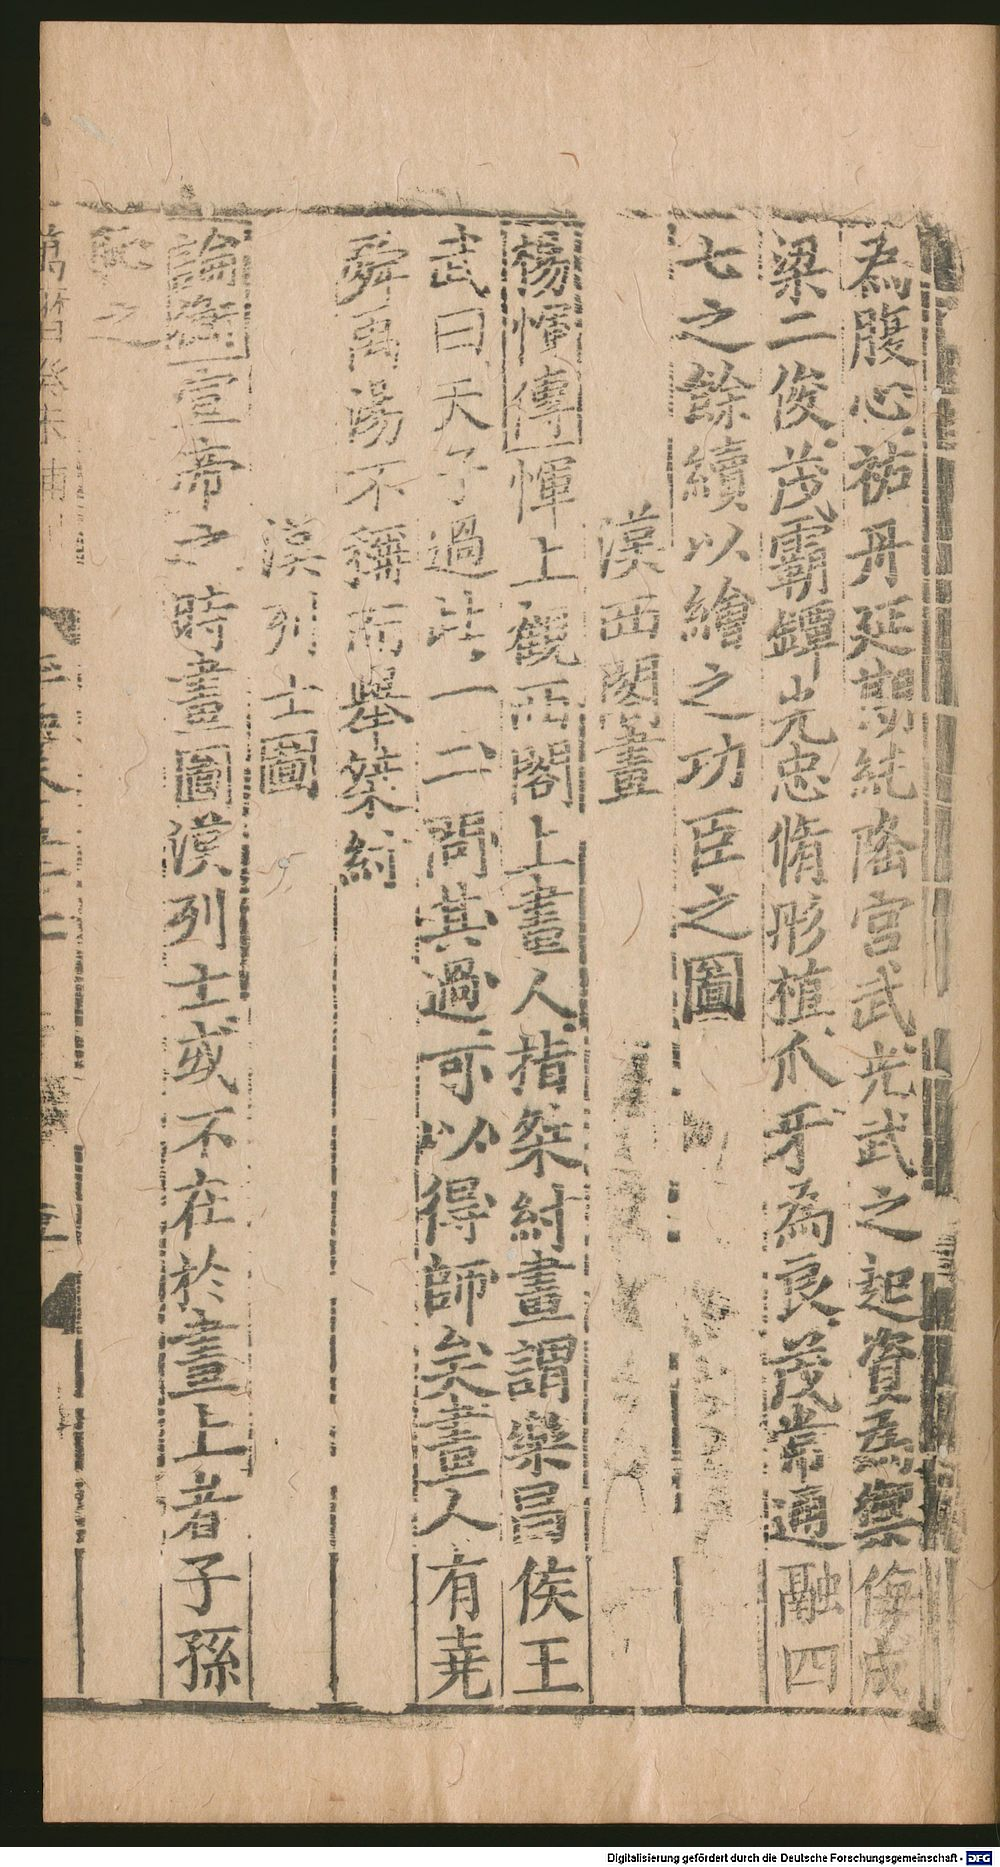 為腹心祐丹延期純隆宮武光武之起資為禦侮成
梁二俊茂霸鐔光忠脩彤植爪牙為良茂常通融四
七之餘續以繪之功臣之圖
漢西閣畫
楊惲傳惲上觀西閣上畫人指桀紂畫謂樂昌侯王
武曰天子過此一二問其過可以得師矣畫人有堯
舜禹湯不稱而舉桀紂
漢列士圖
論衡宣帝之時畫圖漢列士或不在於畫上者子孫
恥之
萬曆癸未補刊
Digitalisierung gefördert durch die Deutsche Forschungsgemeinschaft - DFG